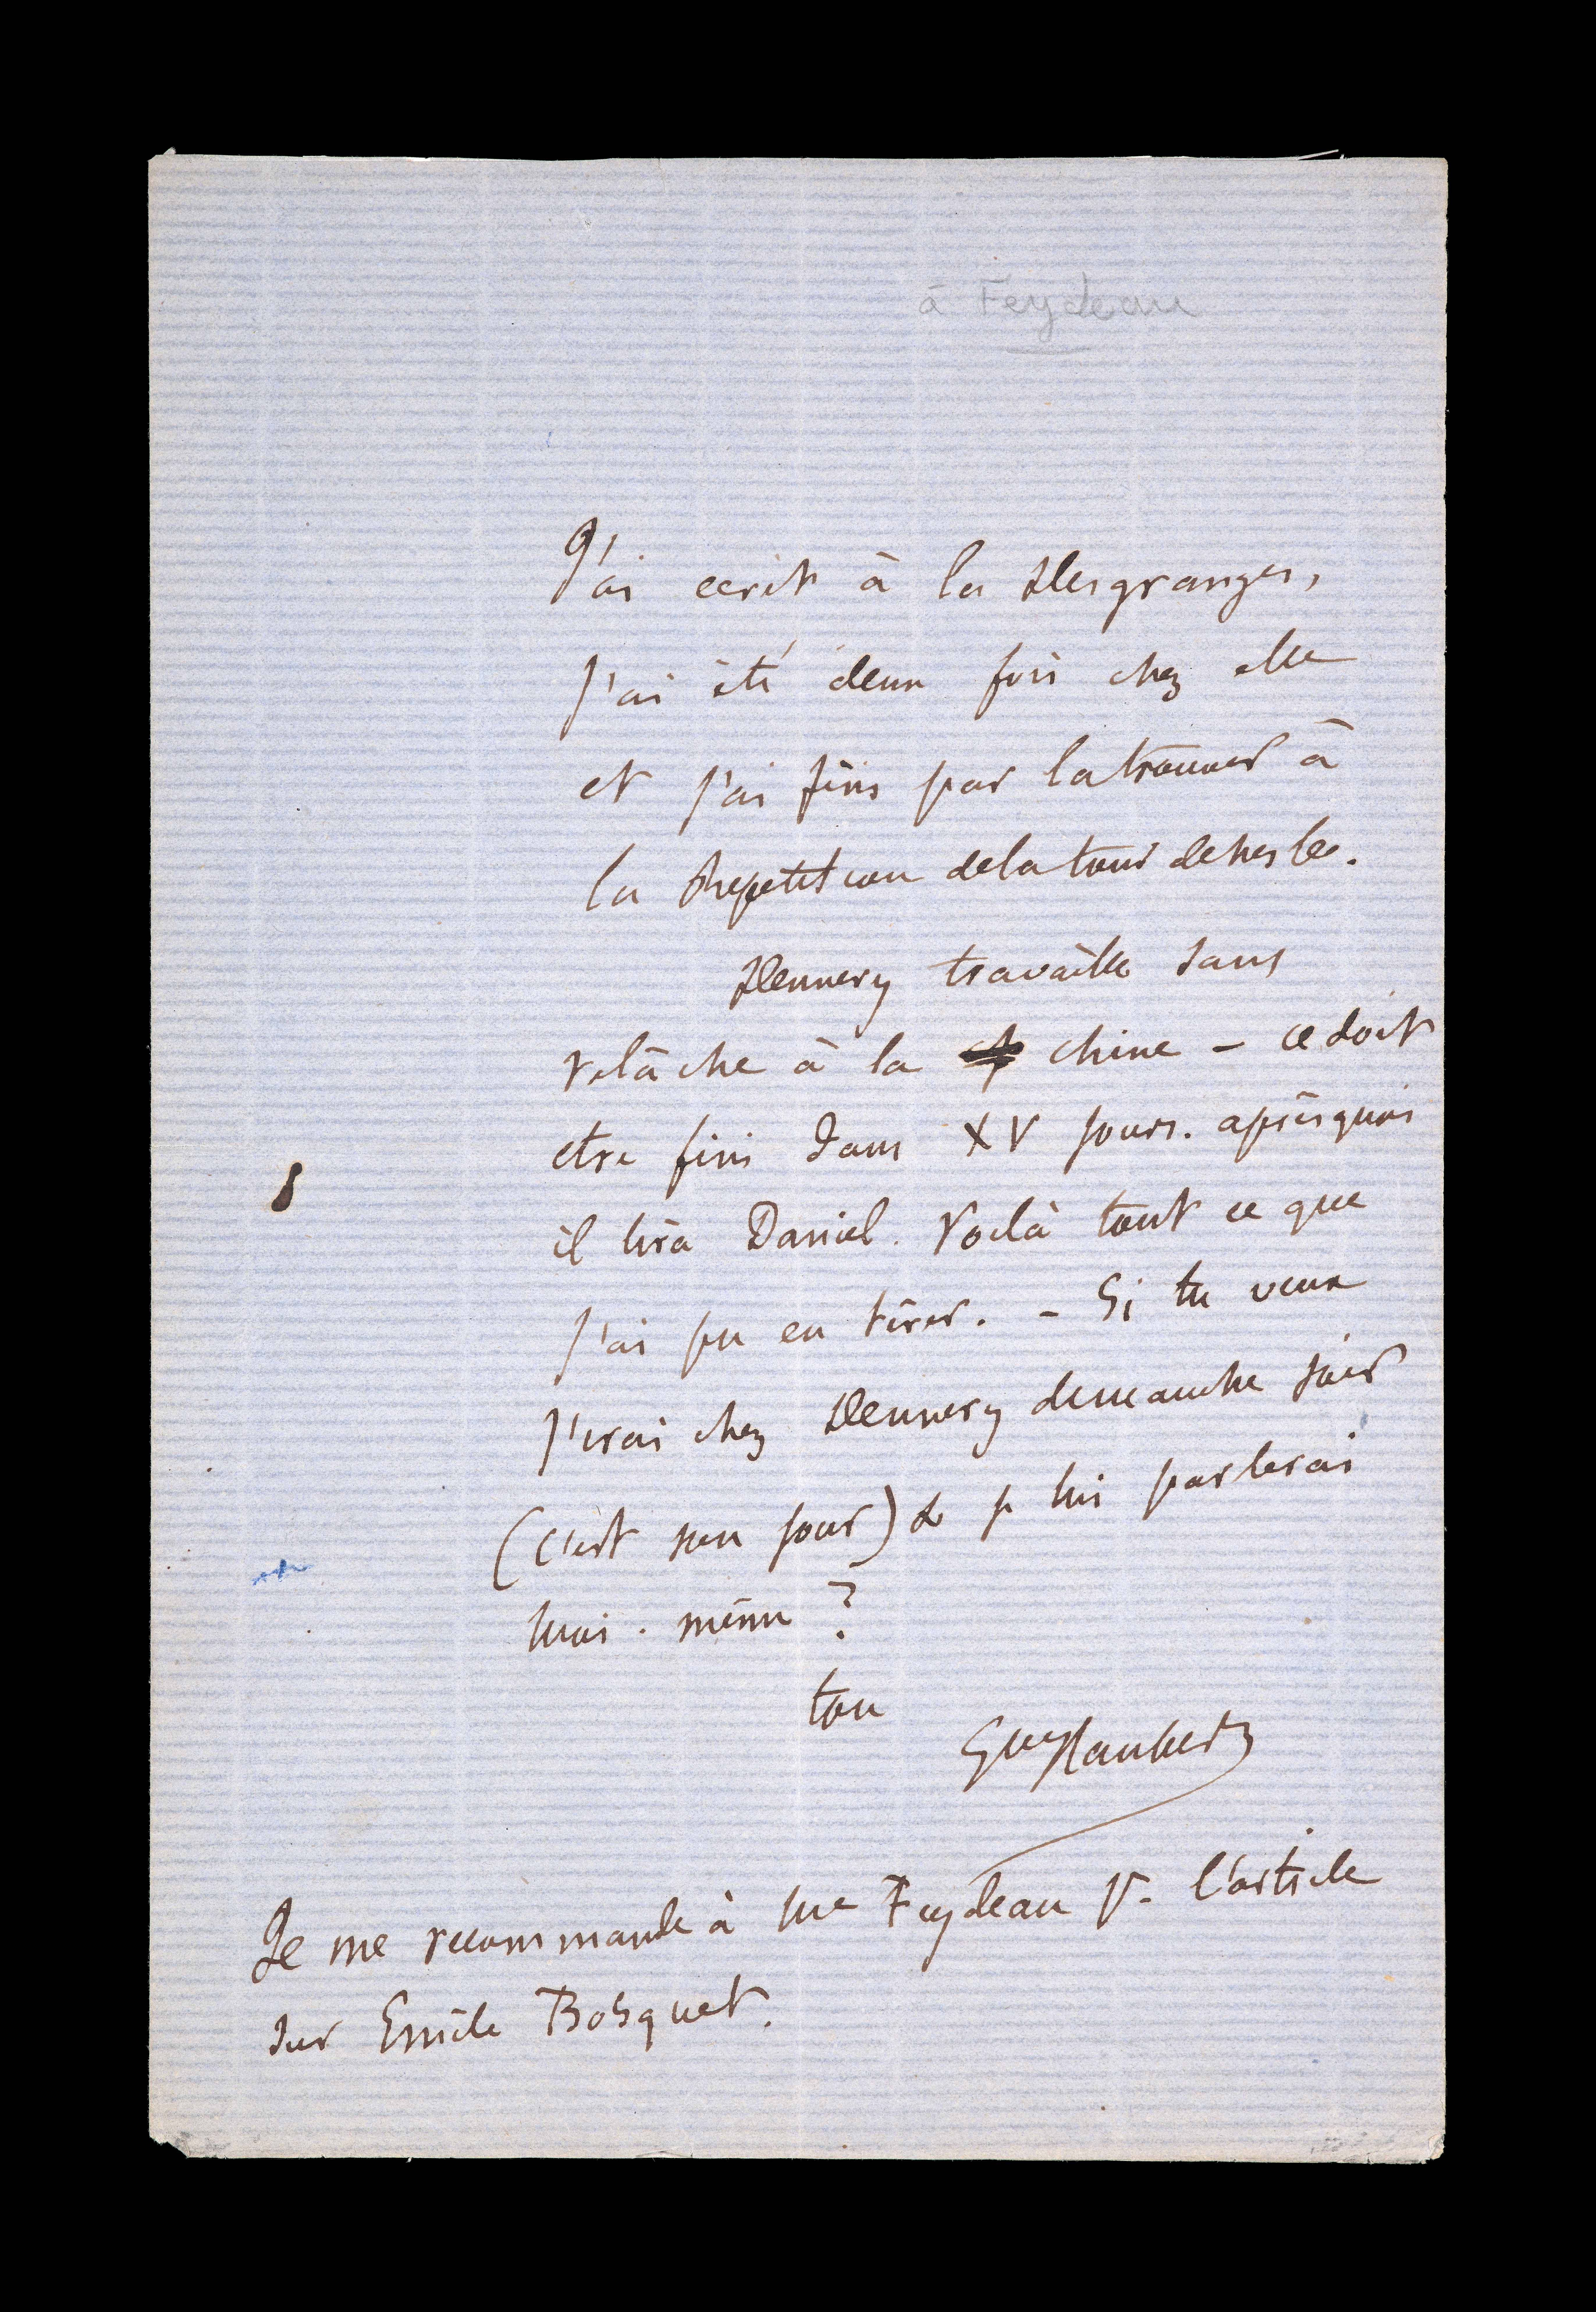 à Feydeau
J'ai ecrit à la Desgranges,
j'ai été deux fois chez elle
et j'ai fini par la trouver à
la Repetition de la tour de nesle.
Dennery travaille sans
relâche à la chine – ce doit
etre fini dans XV jours. après quoi
il lira Daniel. Voilà tout ce que
j'ai pu en tirer. – Si tu veux
j'irai chez Dennery dimanche soir
(c'est son jour) & je lui parlerai
moi-même ?
ton
Gve Flaubert
Je me recommande à me Feydeau pr. l'article
sur Emile Bosquet.